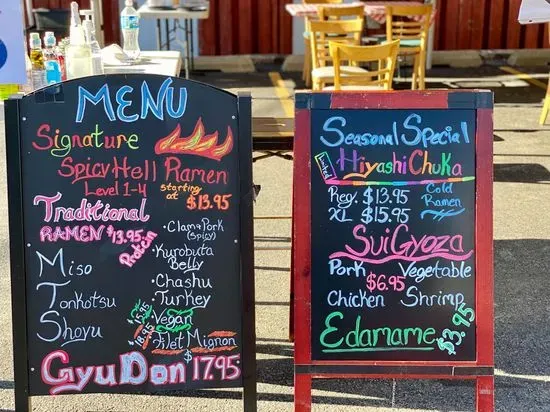 MENU
Signature
Spicy Hell Ramen
Level 1-4
starting at $13.95
Traditional
RAMEN $13.95
Protein
Miso
Tonkotsu
Shoyu
Clama Pork
(spicy)
Kurobuta
Belly
Chashu
Turkey
Vegan
Filet Mignon
GyuDon 17.95
Seasonal Special
Limited
HiyashiChuka
Reg. $13.95
XL $15.95
Cold
Ramen
SuiGyoza
Pork Vegetable
$6.95
Chicken Shrimp
Edamame $3.95